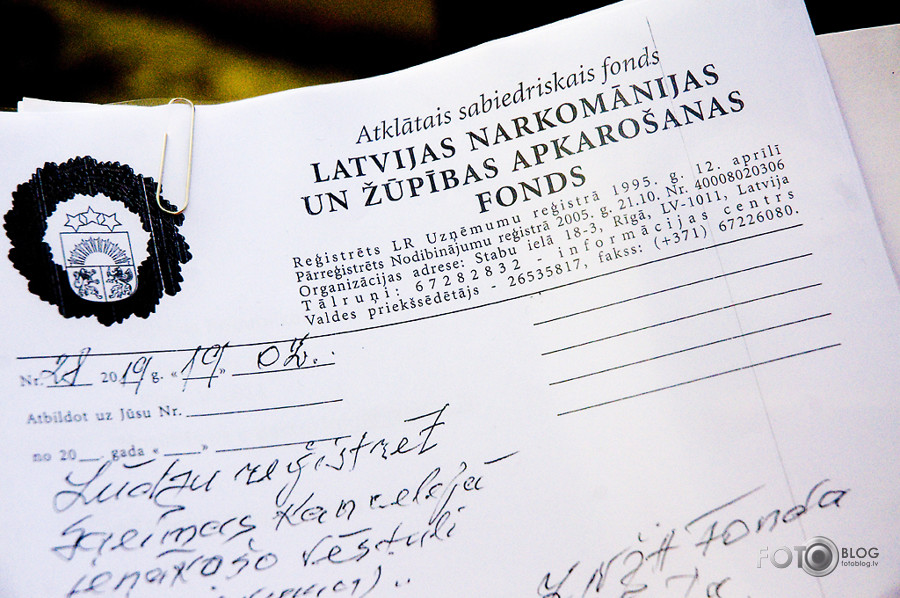 Atklātais sabiedriskais fonds
LATVIJAS NARKOMĀNIJAS
UN ŽŪPĪBAS APKAROŠANAS
FONDS
Reģistrēts LR Uzņēmumu reģistrā 1995. g. 12. aprīlī
Pārreģistrēts Nodibinājumu reģistrā 2005. g. 21.10. Nr. 40008020306
Organizācijas adrese: Stabu ielā 18-3, Rīgā, LV-1011, Latvija
Tālruņi: 67282832 - informācijas centrs
Valdes priekšsēdētājs - 26535817, fakss: (+371) 67226080.
Nr. 28 2019 g. «19» 02.
Atbildot uz Jūsu Nr.
no 20__. gada «___»
Lūdzu reģistrēt
Saeimas Kancelejā
ienākošo vēstuli
LNŽA Fonda
FOTO BLOG
fotoblog.lv